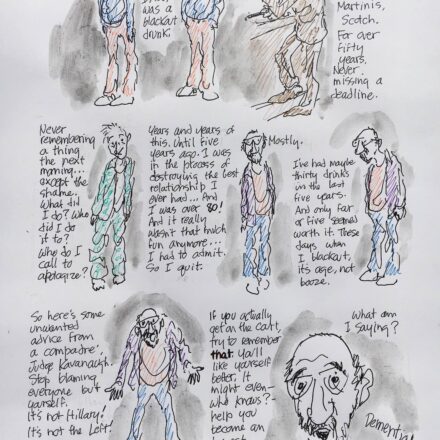 was a
blackout
drunk.
Martinis,
Scotch.
For over
fifty
years.
Never
missing a
deadline.
Never
remembering
a thing
the next
morning...
except the
shame.
What did
I do? Who
did I do
it to?
Who do I
call to
apologize?
Years and years of
this. Until five
years ago. I was
in the process of
destroying the best
relationship I
ever had... And
I was over 80!
And it really
wasn't that much
fun anymore...
I had to admit.
So I quit.
Mostly.
I've had maybe
thirty drinks
in the last
five years.
And only four
or five seemed
worth it. These
days when
I blackout,
it's age, not
booze.
So here's some
unwanted
advice from
a compadre:
Judge Kavanagh:
Stop blaming
everyone but
yourself.
It's not Hillary!
It's not the Left!
If you actually
get on the cart,
try to remember
that. You'll
like yourself
better. It
might even—
who knows?—
help you
become an
What am
I saying?
Dementia